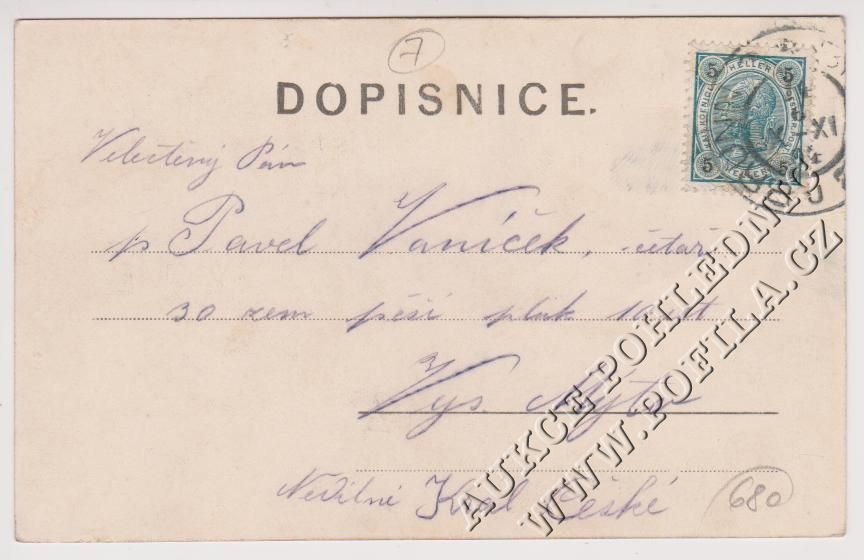 7
DOPISNICE.
5 HELLER 5
5 HELLER 5
XI
Velectěný Pán
p Pavel Vaníček, četař
30 zem pěší pluk 10
Vys. Mýto
Král České
680
AUKCE POHLEDNIC
WWW.POFILA.CZ